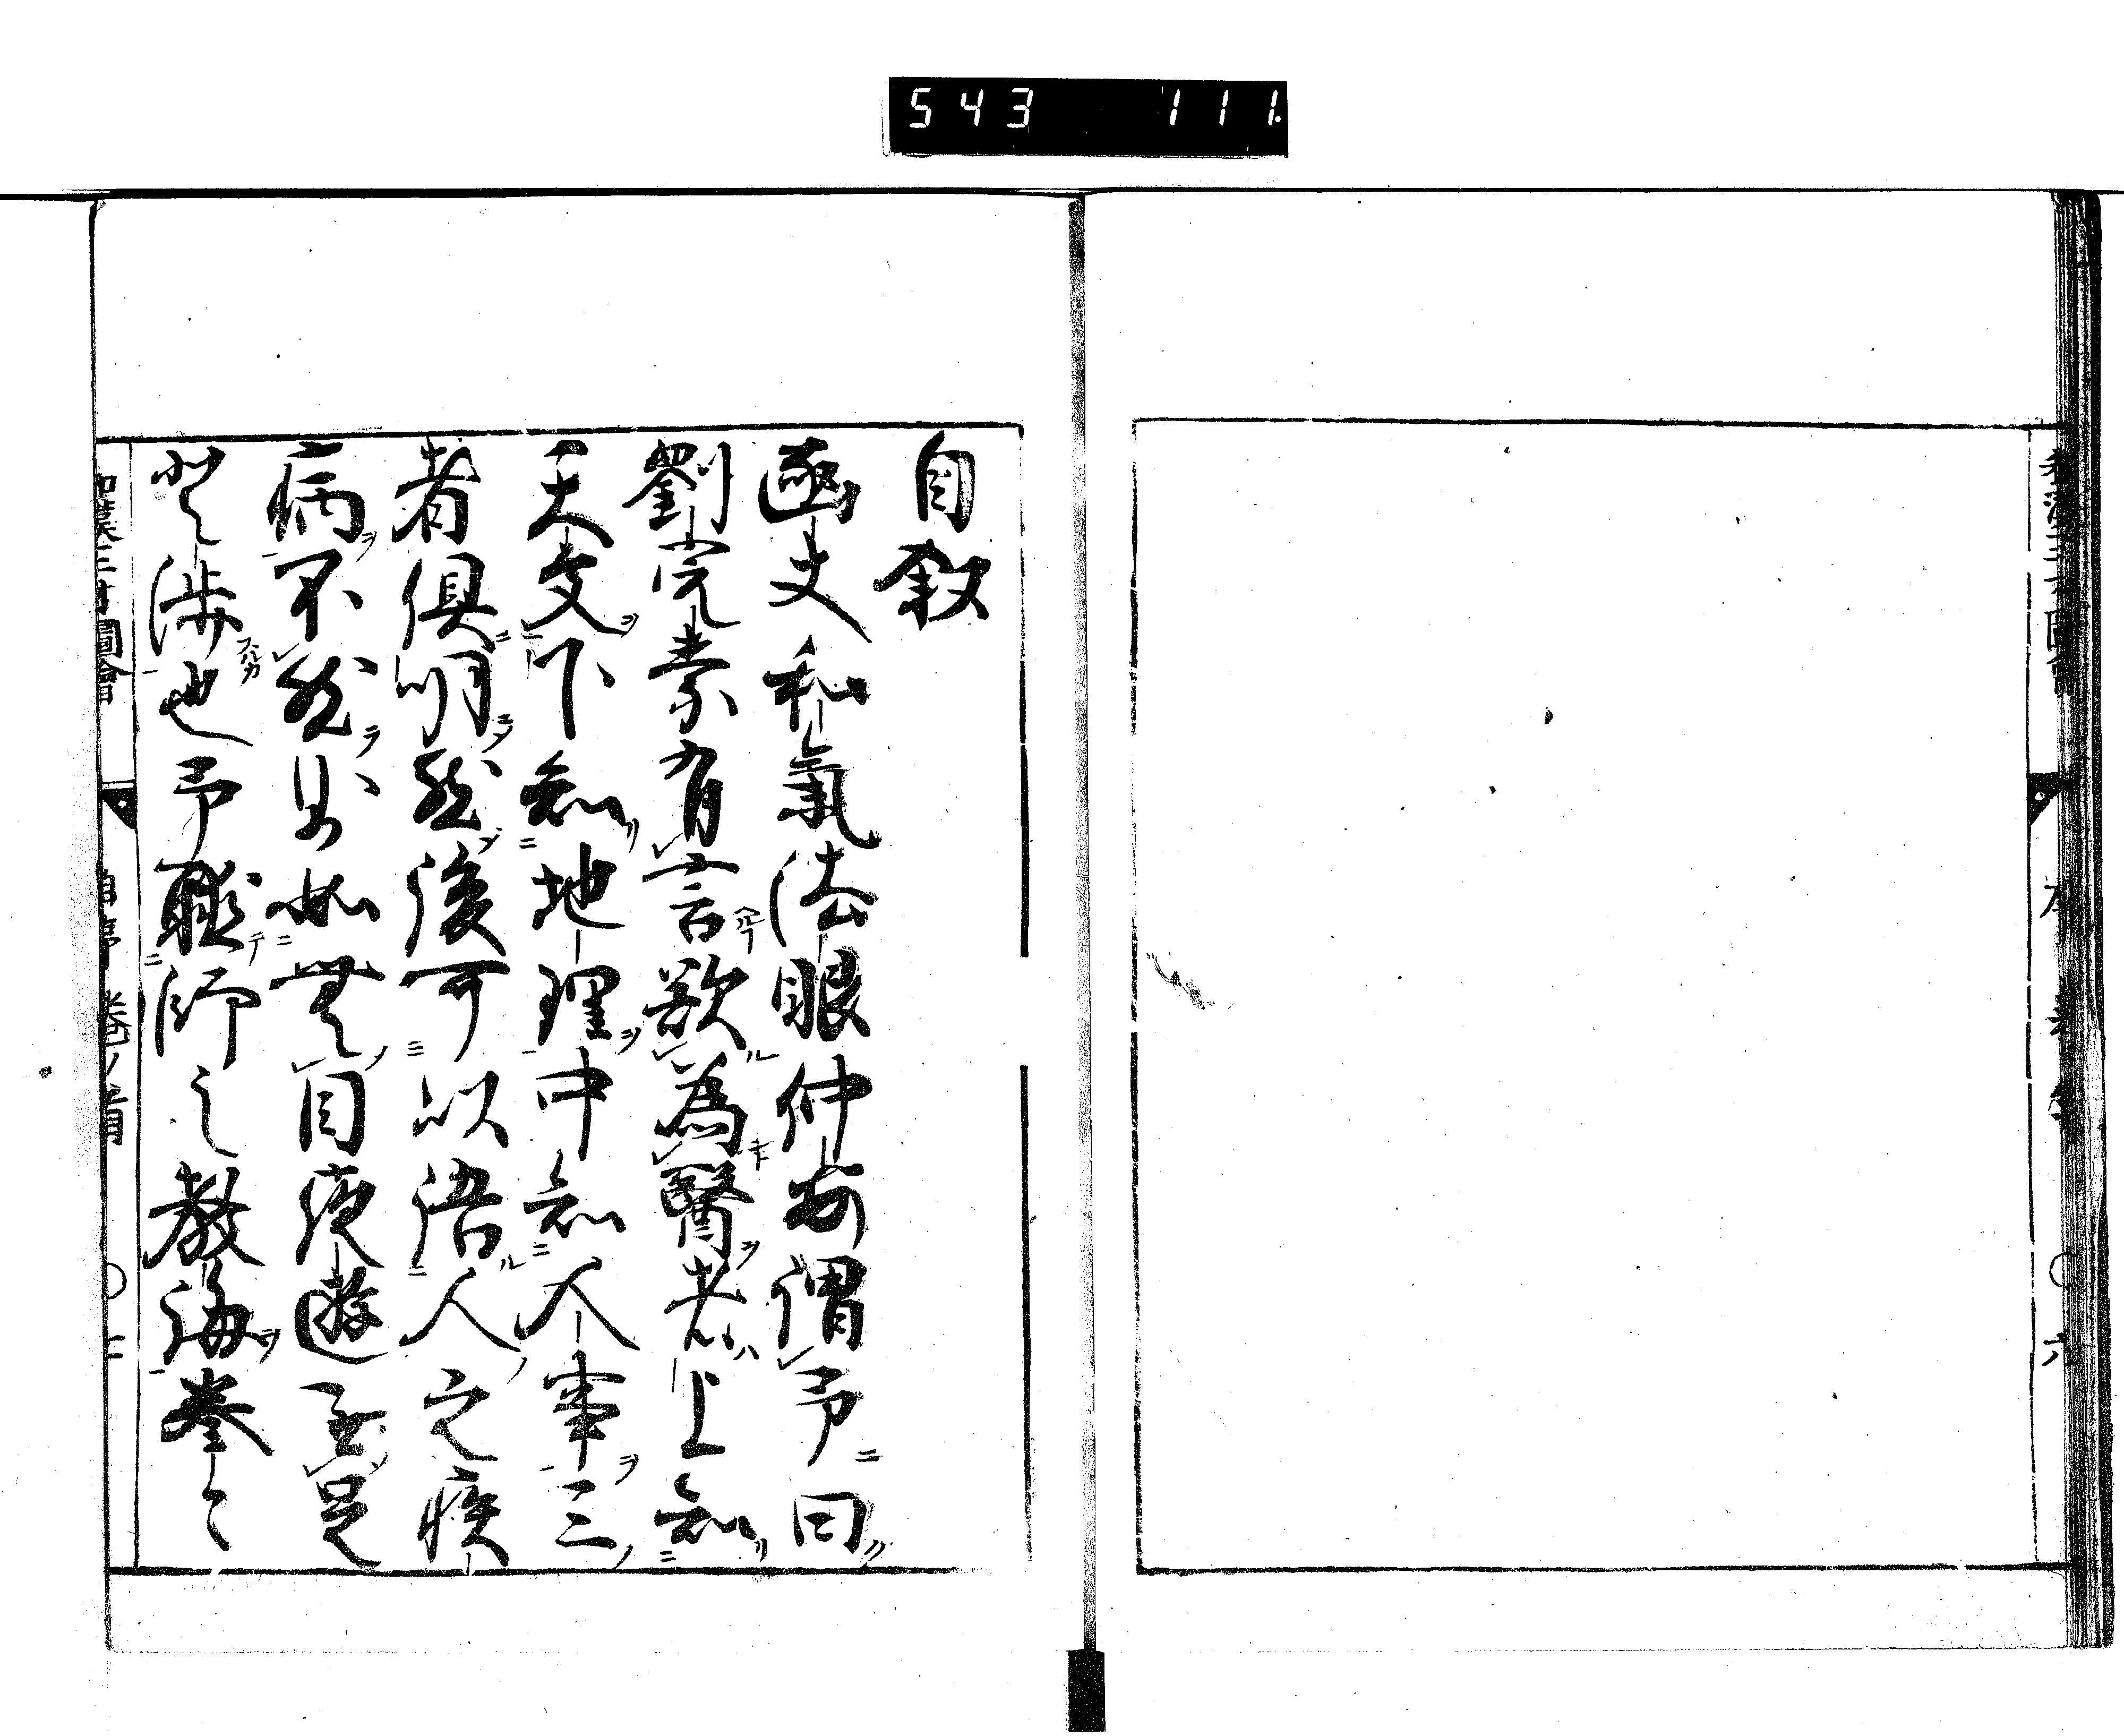 543 111.
和漢三才圖會 序 卷首 〇 六
自叙
凾丈和氣法眼仲安謂予曰
劉完素有言欲為醫者上知
天文下知地理中知人事三
者俱明然後可以語人之疾
病不然則如無目夜遊無足
登涉也予聽師之教誨拳〻
和漢三才圖會 自序 卷ノ首 〇